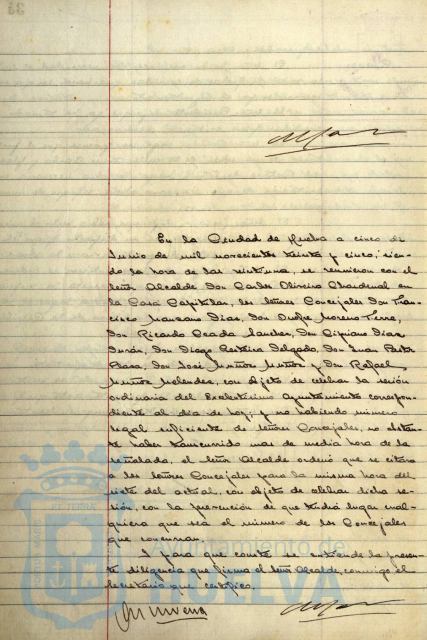 En la Ciudad de Huelva a cinco de
Junio de mil novecientos treinta y cinco, sien-
do la hora de las veintiuna, se reunieron con el
Señor Alcalde Don Carlos Oliveira Chardenal en
la Casa Capitular, los señores Concejales Don Fran-
cisco Manzano Díaz, Don Onofre Moreno Terre,
Don Ricardo Ceada Sanchez, Don Cipriano Diaz
Durán, Don Diego Delgado, Don Juan
Don José Muñoz Muñoz y Don Rafael
Muñoz Melendez, con objeto de celebrar la sesión
ordinaria del Excelentísimo Ayuntamiento correspon-
diente al día de hoy; y no habiendo número
legal suficiente de señores Concejales, no obstan-
te haber transcurrido mas de media hora de la
señalada, el Señor Alcalde ordenó que se citara
a los señores Concejales para la misma hora del
siete del actual, con objeto de celebrar dicha se-
sión, con la prevención de que tendrá lugar cual-
quiera que sea el número de los Concejales
que concurran.
Y para que conste se extiende la presen-
te diligencia que firma el Señor Alcalde, conmigo el
Secretario que certifico.
Ayuntamiento de
HUELVA